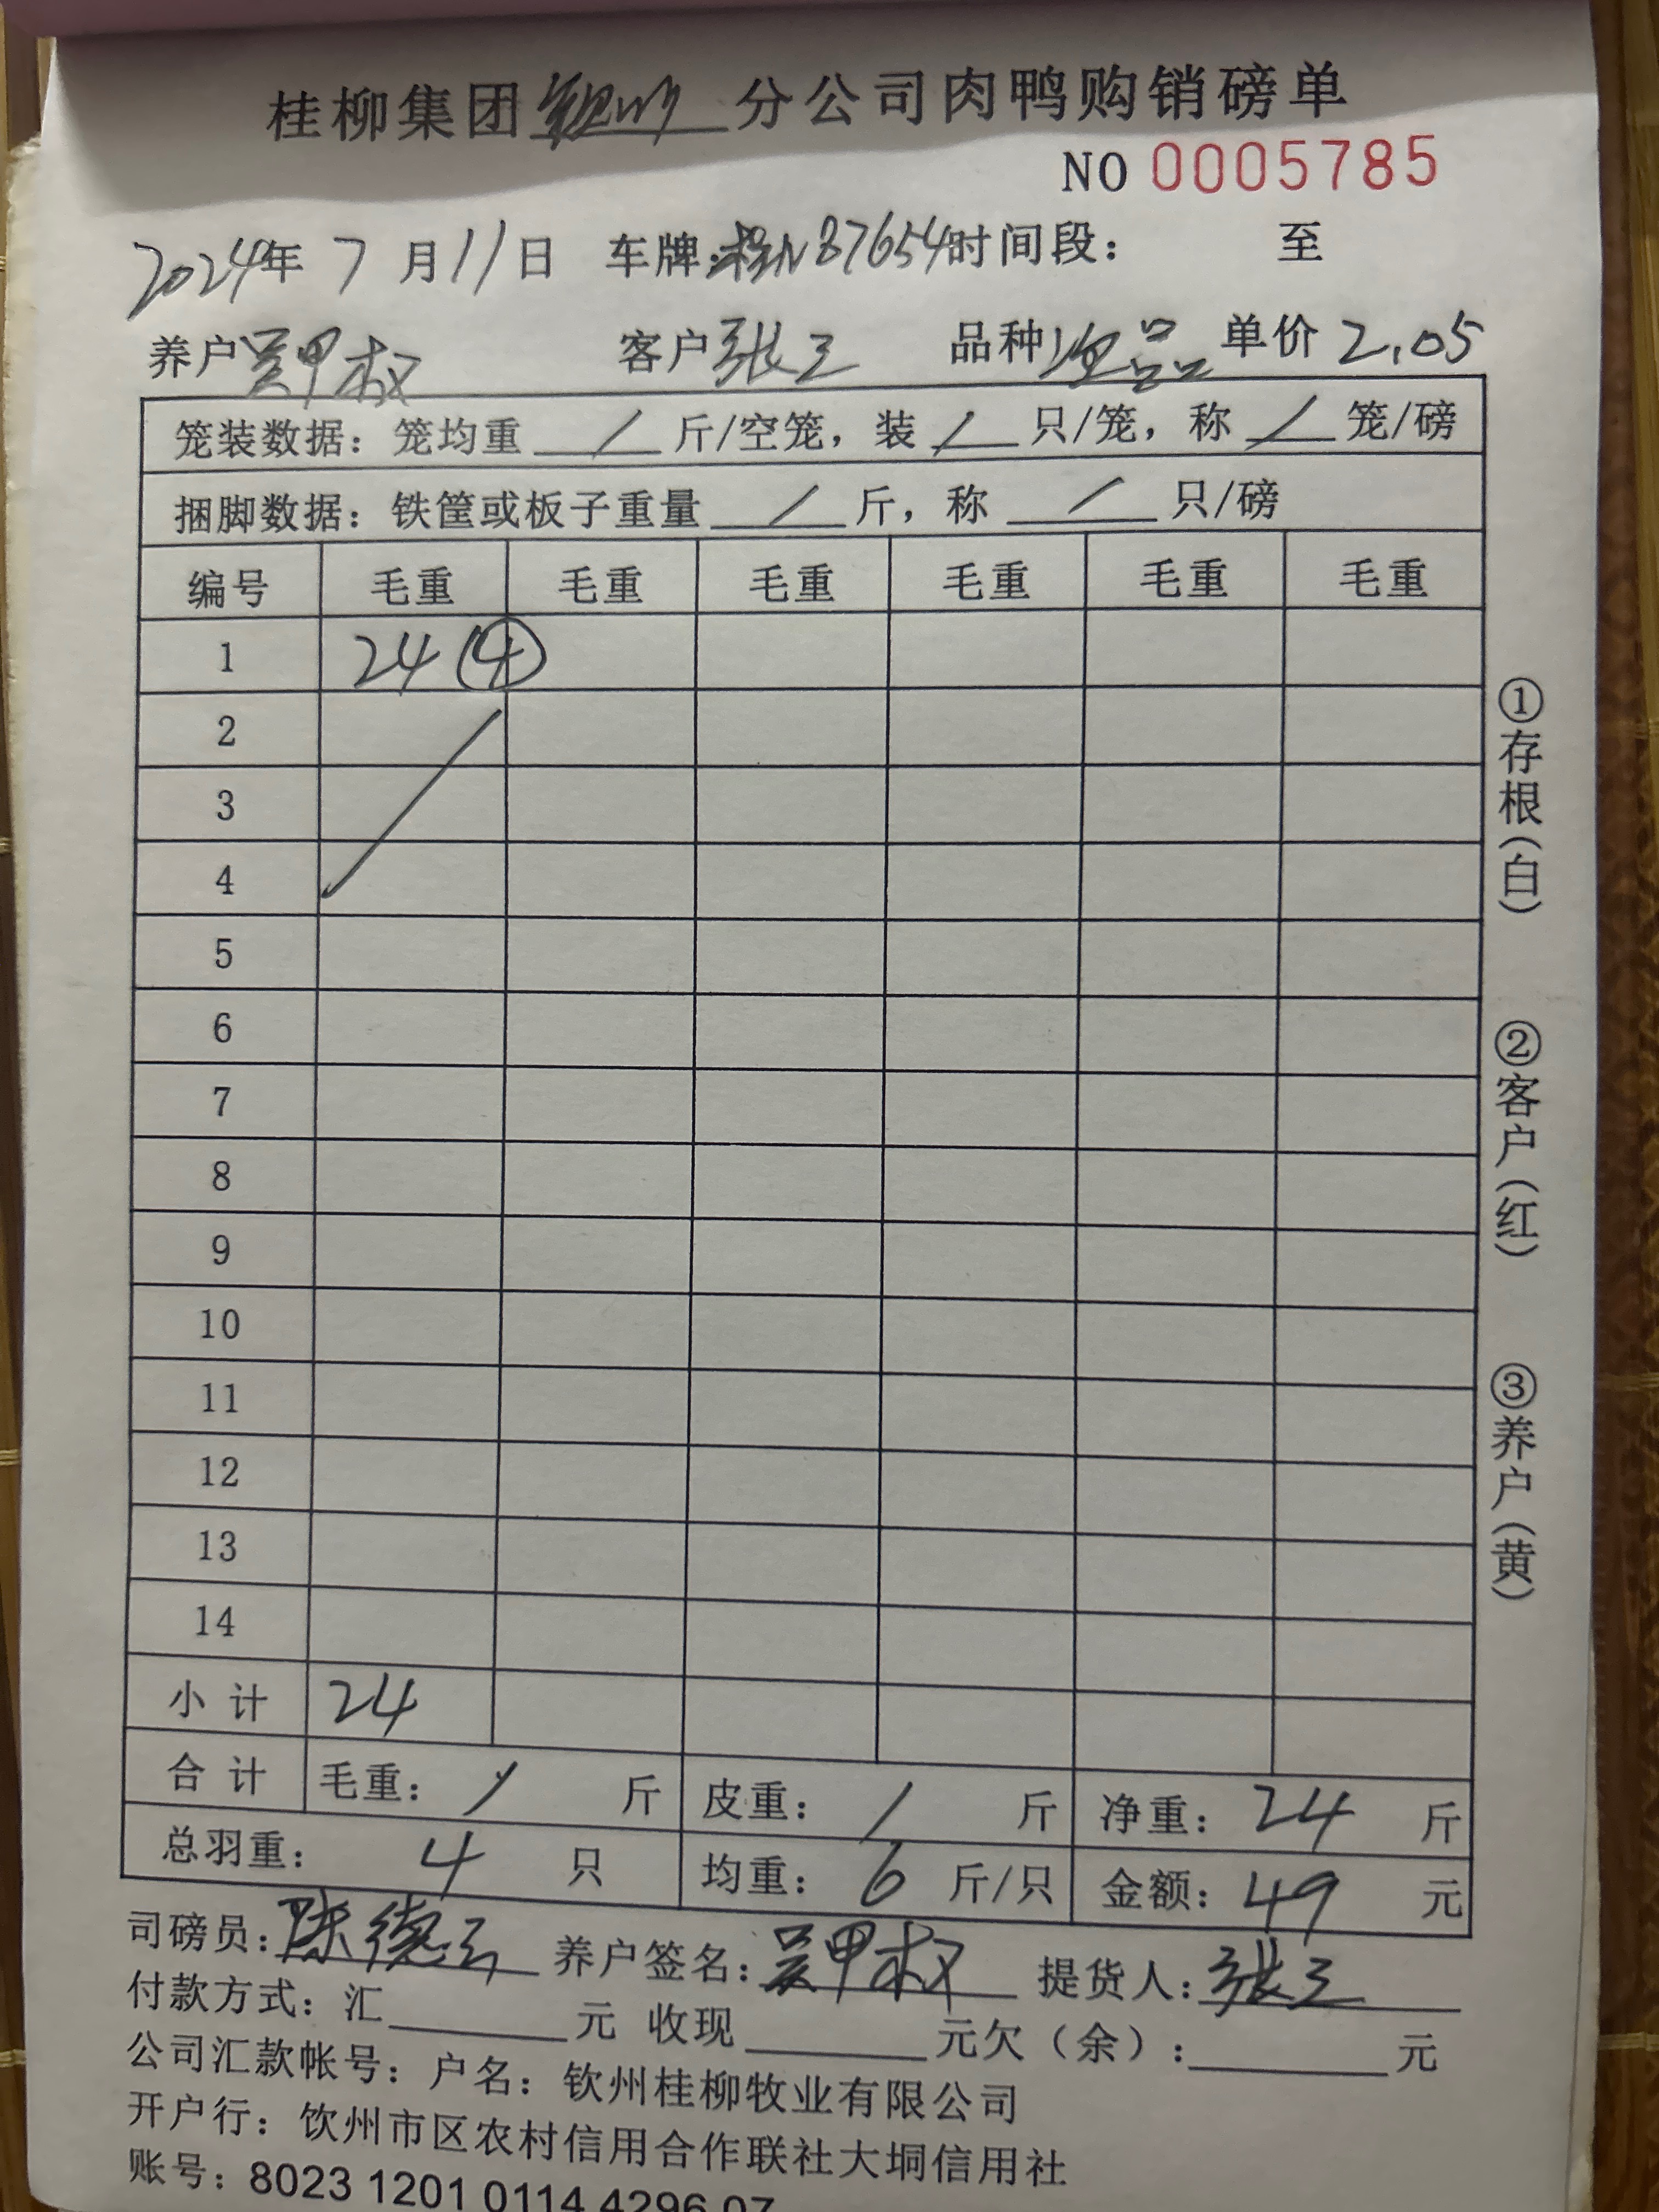 桂柳集团 分公司肉鸭购销磅单
NO 0005785
2024年 7 月 11 日 车牌: N87654 时间段: 至
养户 吴甲权 客户 张三 品种 次品 单价 2.05
笼装数据: 笼均重 / 斤/空笼, 装 / 只/笼, 称 / 笼/磅
捆脚数据: 铁筐或板子重量 / 斤, 称 / 只/磅
编号 毛重 毛重 毛重 毛重 毛重 毛重
1 24 ④
2
3
4
5
6
7
8
9
10
11
12
13
14
小计 24
合计 毛重: / 斤 皮重: / 斤 净重: 24 斤
总羽重: 4 只 均重: 6 斤/只 金额: 49 元
司磅员: 陈德云 养户签名: 吴甲权 提货人: 张三
付款方式: 汇______元 收现______元欠(余):______元
公司汇款帐号: 户名: 钦州桂柳牧业有限公司
开户行: 饮州市区农村信用合作联社大垌信用社
账号: 8023 1201 0114 4296 07
①存根(白)
②客户(红)
③养户(黄)